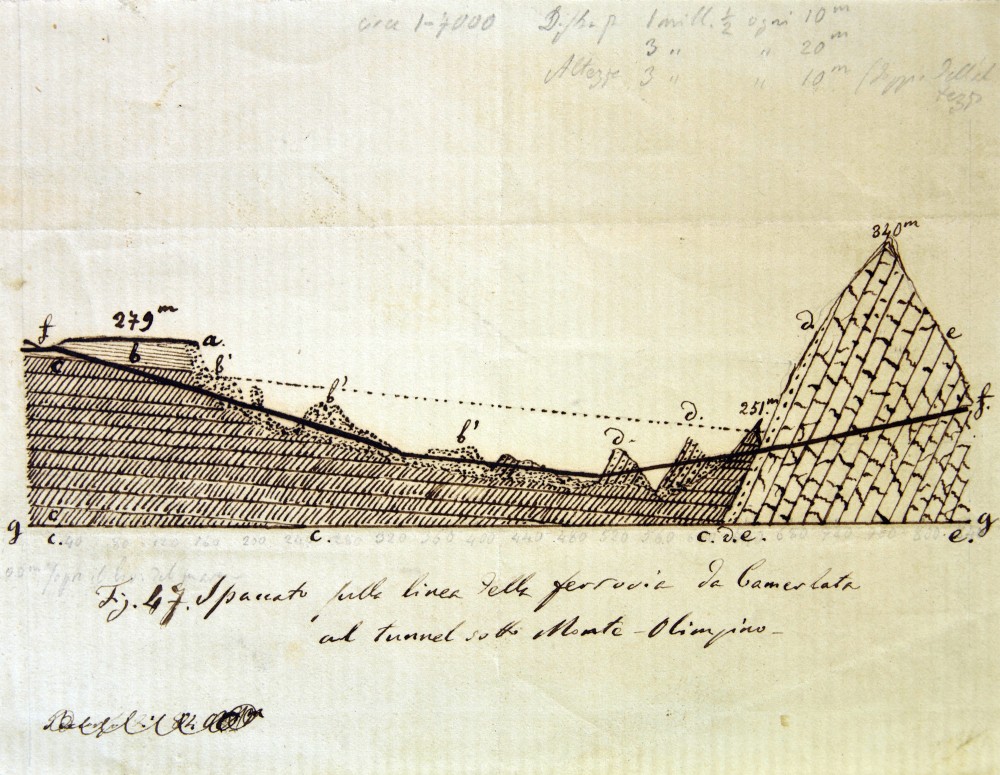 circa 1-7000 1 mill. ½ ogni 10 m
3 " " 20 m
Altezze 3 " " 10 m
340 m
279 m
f
a
d
e
b
b'
c
b'
251. m
f.
d.
b'
d.
g c
g
c. c. c. d. e. e.
40 80 120 160 200 240 280 320 360 400 440 480 520 560
Fig. 47. Spaccato sulla linea della ferrovia da Camerlata
al tunnel sotto Monte-Olimpino-